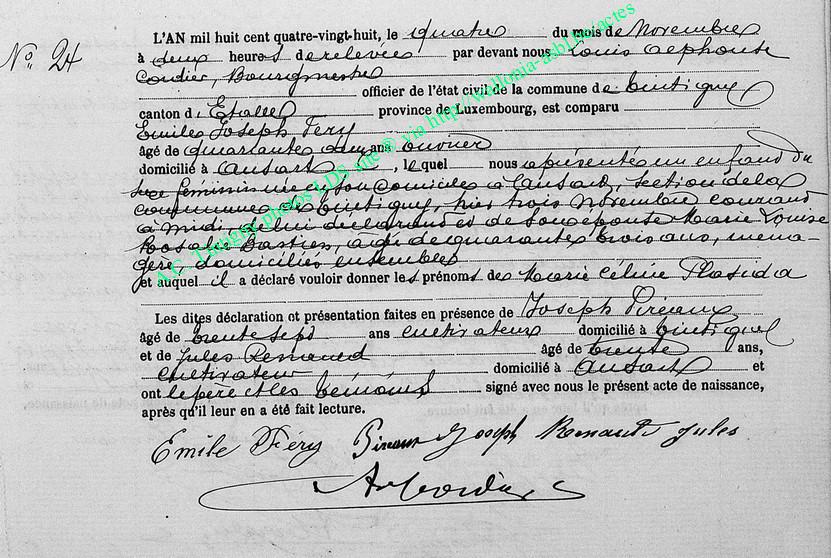 N° 24
L'AN mil huit cent quatre-vingt-huit, le quatre du mois de Novembre
à deux heures de relevée par devant nous Louis Alphonse
Cordier, Bourgmestre
officier de l'état civil de la commune de Tintigny
canton d'Etalle province de Luxembourg, est comparu
Emile Joseph Féry
âgé de quarante deux ans ouvrier
domicilié à Ansart, lequel nous a présenté un enfant du
sexe feminin née en son domicile à Ansart, section de la
commune de Tintigny, hier trois Novembre courant
à midi, de lui déclarant et de son épouse Marie Louise
Rosalie Bastien, agée de quarante trois ans, ména-
gère, domiciliés ensemble
et auquel il a déclaré vouloir donner les prénoms de Marie Céline Plasida
Les dites déclaration et présentation faites en présence de Joseph Piraux
âgé de trente sept ans cultivateur domicilié à Tintigny
et de Jules Renauld âgé de trente ans,
cultivateur domicilié à Ansart et
ont le père et les témoins signé avec nous le présent acte de naissance,
après qu'il leur en a été fait lecture.
Emile Féry Piraux Joseph Renauld Jules
Cordier
A.C. Tintigny photos LDS site © via http://wallonia-asbl.be/actes